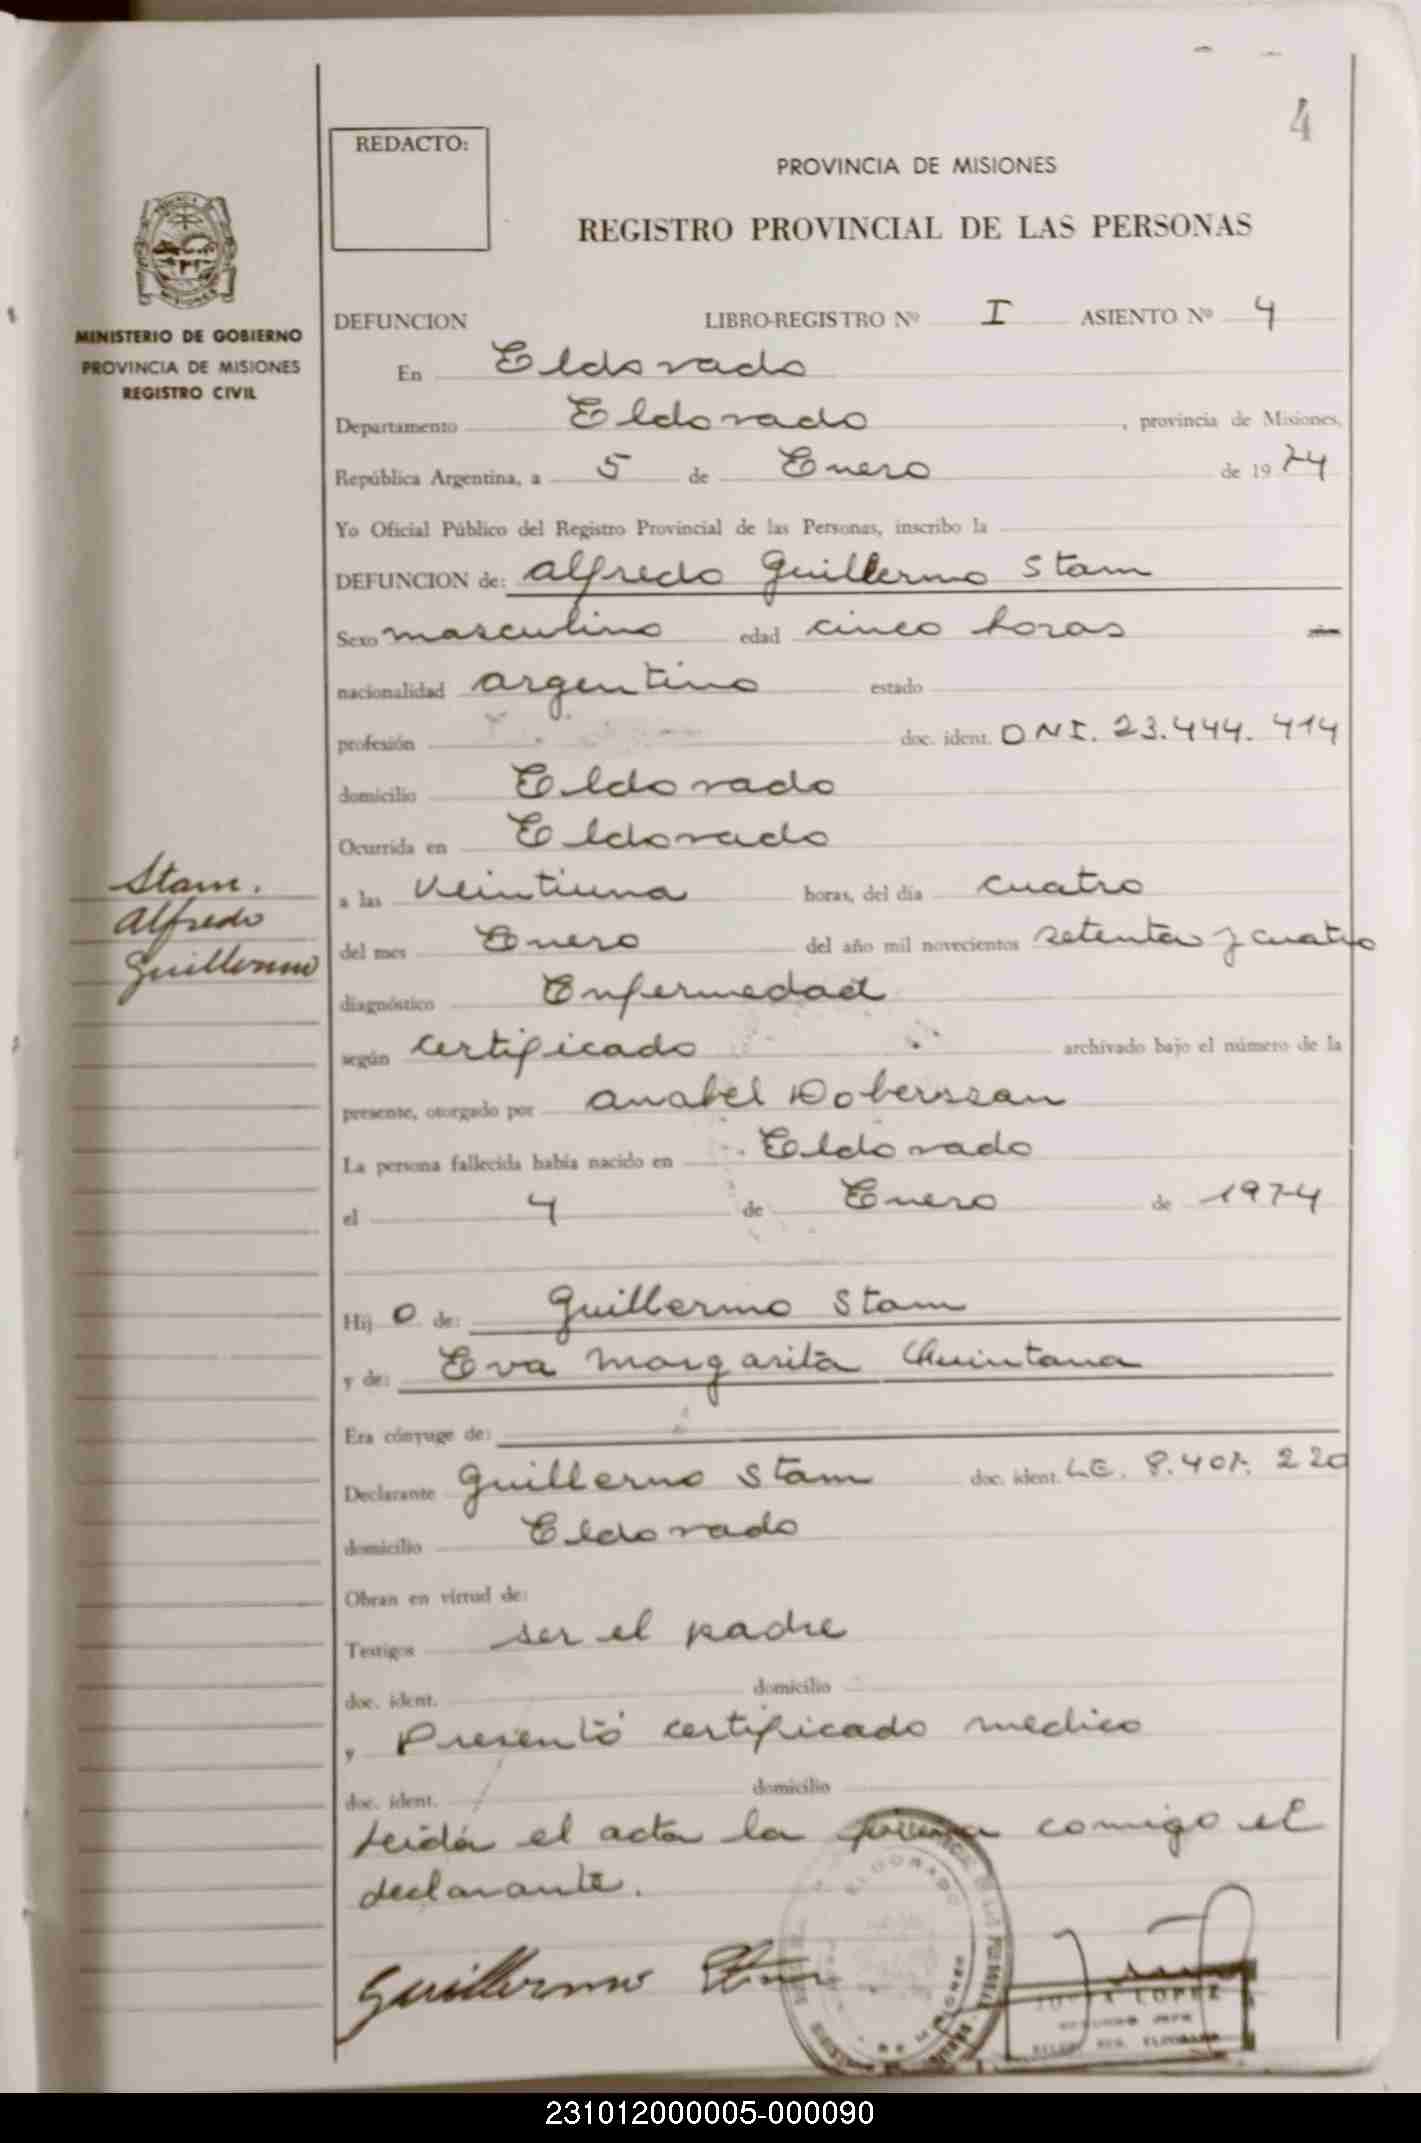 4
REDACTO:
PROVINCIA DE MISIONES
REGISTRO PROVINCIAL DE LAS PERSONAS
MINISTERIO DE GOBIERNO
PROVINCIA DE MISIONES
REGISTRO CIVIL
DEFUNCION LIBRO-REGISTRO Nº I ASIENTO Nº 4
En Eldorado
Departamento Eldorado, provincia de Misiones,
República Argentina, a 5 de Enero de 1974
Yo Oficial Público del Registro Provincial de las Personas, inscribo la
DEFUNCION de: Alfredo Guillermo Stam
Sexo masculino edad cinco horas —
nacionalidad argentino estado
profesión doc. ident. DNI. 23.444.414
domicilio Eldorado
Ocurrida en Eldorado
Stam.
Alfredo
Guillermo
a las veintiuna horas, del día cuatro
del mes Enero del año mil novecientos setenta y cuatro
diagnóstico Enfermedad
según certificado archivado bajo el número de la
presente, otorgado por Anabel
La persona fallecida había nacido en Eldorado
el 4 de Enero de 1974
Hijo de: Guillermo Stam
y de: Eva Margarita Quintana
Era cónyuge de:
Declarante Guillermo Stam doc. ident. L.E. 8.407.220
domicilio Eldorado
Obran en virtud de:
Testigos ser el padre
doc. ident. domicilio
y Presentó certificado medico
doc. ident. domicilio
Leida el acta la firma comigo el
declarante.
Guillermo Stam
ELDORADO
LOPEZ
231012000005-000090